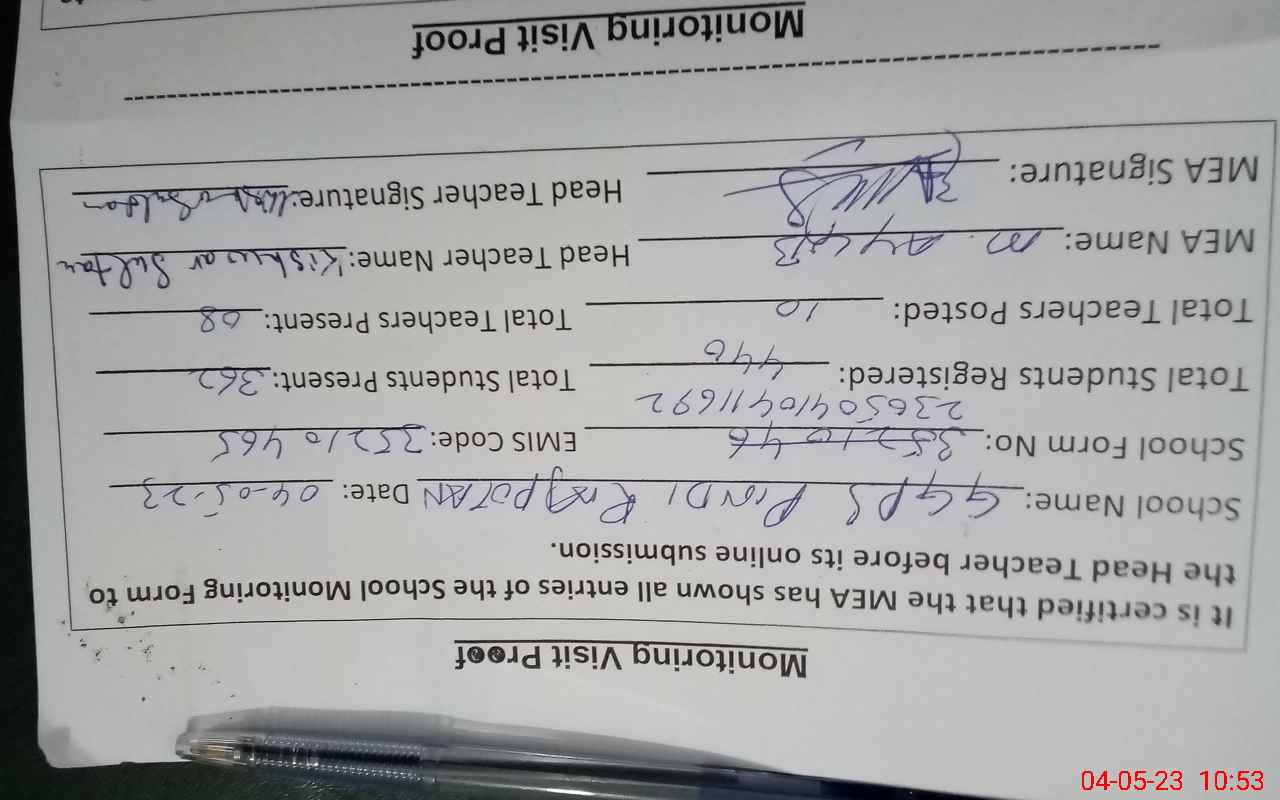 Monitoring Visit Proof
It is certified that the MEA has shown all entries of the School Monitoring Form to
the Head Teacher before its online submission.
School Name: GGPS PINDI RAJPOTAN Date: 04-05-23
School Form No: 3521046 EMIS Code: 35210465
2365041041692
Total Students Registered: 446 Total Students Present: 362
Total Teachers Posted: 10 Total Teachers Present: 08
MEA Name: M. AYUB Head Teacher Name: Kishwar Sultan
MEA Signature: Head Teacher Signature: Sultan
Monitoring Visit Proof
04-05-23 10:53